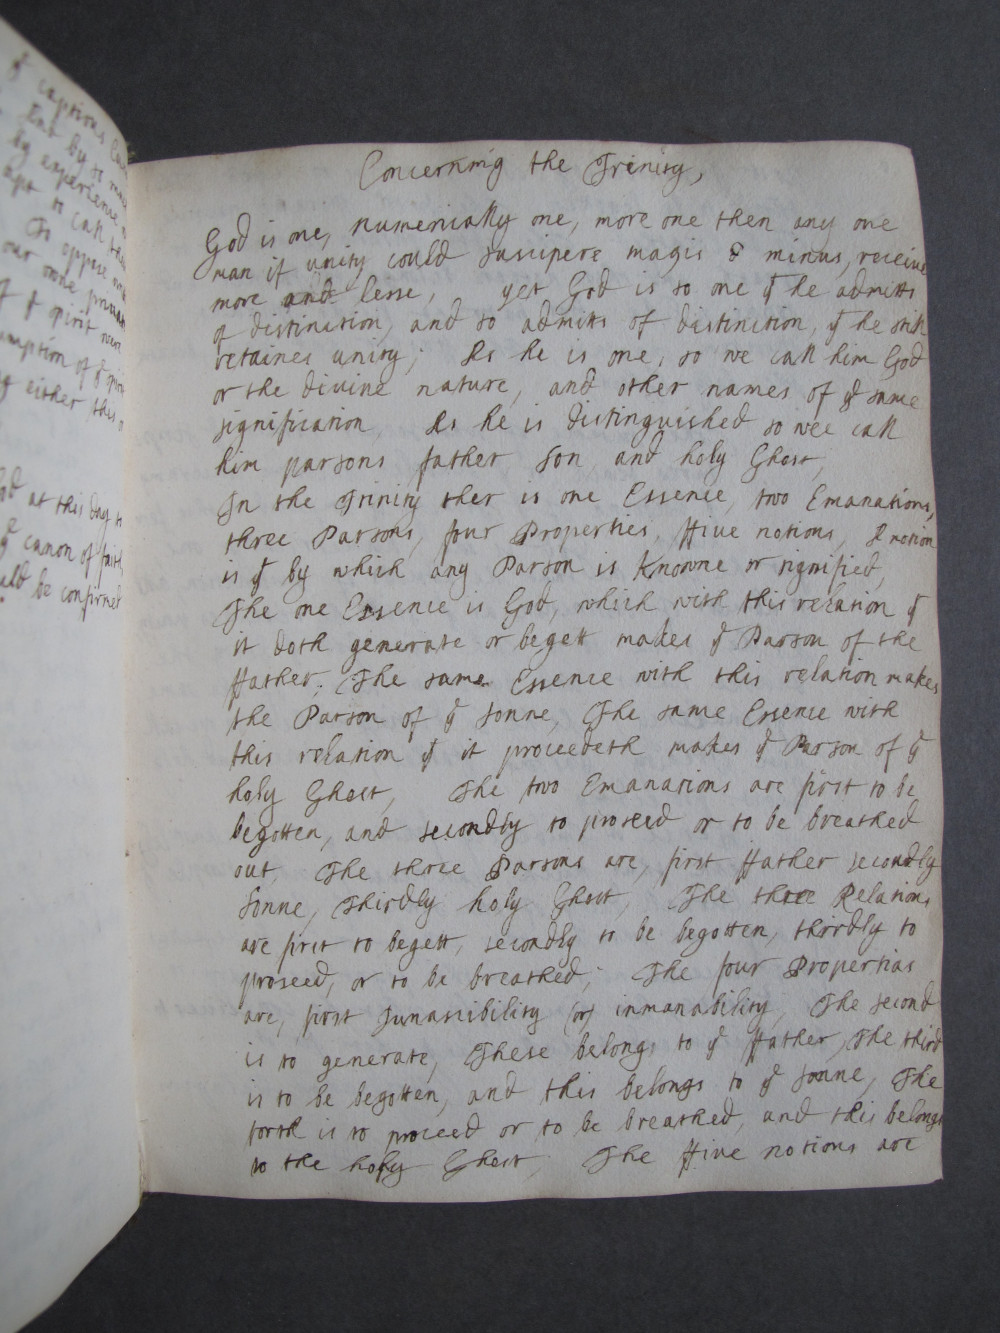 ẏ captious
But by so
by experience
apt to call the
To oppose
our owne private
of ẏ spirit were
umption of ẏ spirit
ng either this o
God at this day to
ẏ canon of faith
uld be confirmed
Concerning the Trinity,
God is one, numerically one, more one then any one
man if unity could suscipere magis & minus, receive
more and lesse, yet God is so one yt he admitts
of distinction, and so admitts of distinction, yt he still
retaines unity; As he is one, so we call him God
or the divine nature, and other names of ye same
signification, As he is distinguished so wee call
him parsons father Son and holy Ghost,
In the Trinity ther is one Essence, two Emanations,
three Parsons, four Properties, ffive notions, A notion
is yt by which any Parson is Knowne or signified,
The one Essence is God, which with this relation yt
it doth generate or begett makes ye Parson of the
ffather, The same Essence with this relation makes
the Parson of ye sonne, The same Essence with
this relation yt it proceedeth makes ye Parson of ye
holy Ghost, The two Emanations are first to be
begotten, and secondly to proseed or to be breathed
out, The three Parsons are, first ffather secondly
Sonne, Thirdly holy Ghost, The three Relations
are first to begett, secondly to be begotten, thirdly to
proseed, or to be breathed; The four Propertias
are, first Junascibility (or) inmanability, The second
is to generate, These belongs to ye ffather, The third
is to be begotten, and this belongs to ye sonne, The
forth is to proceed or to be breathed, and this belongs
to the holy Ghost, The ffive notions are